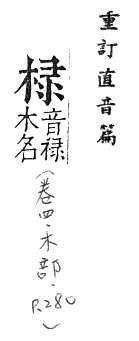 重訂直音篇
椂
音禄
木名
(卷四·木部·P.280)